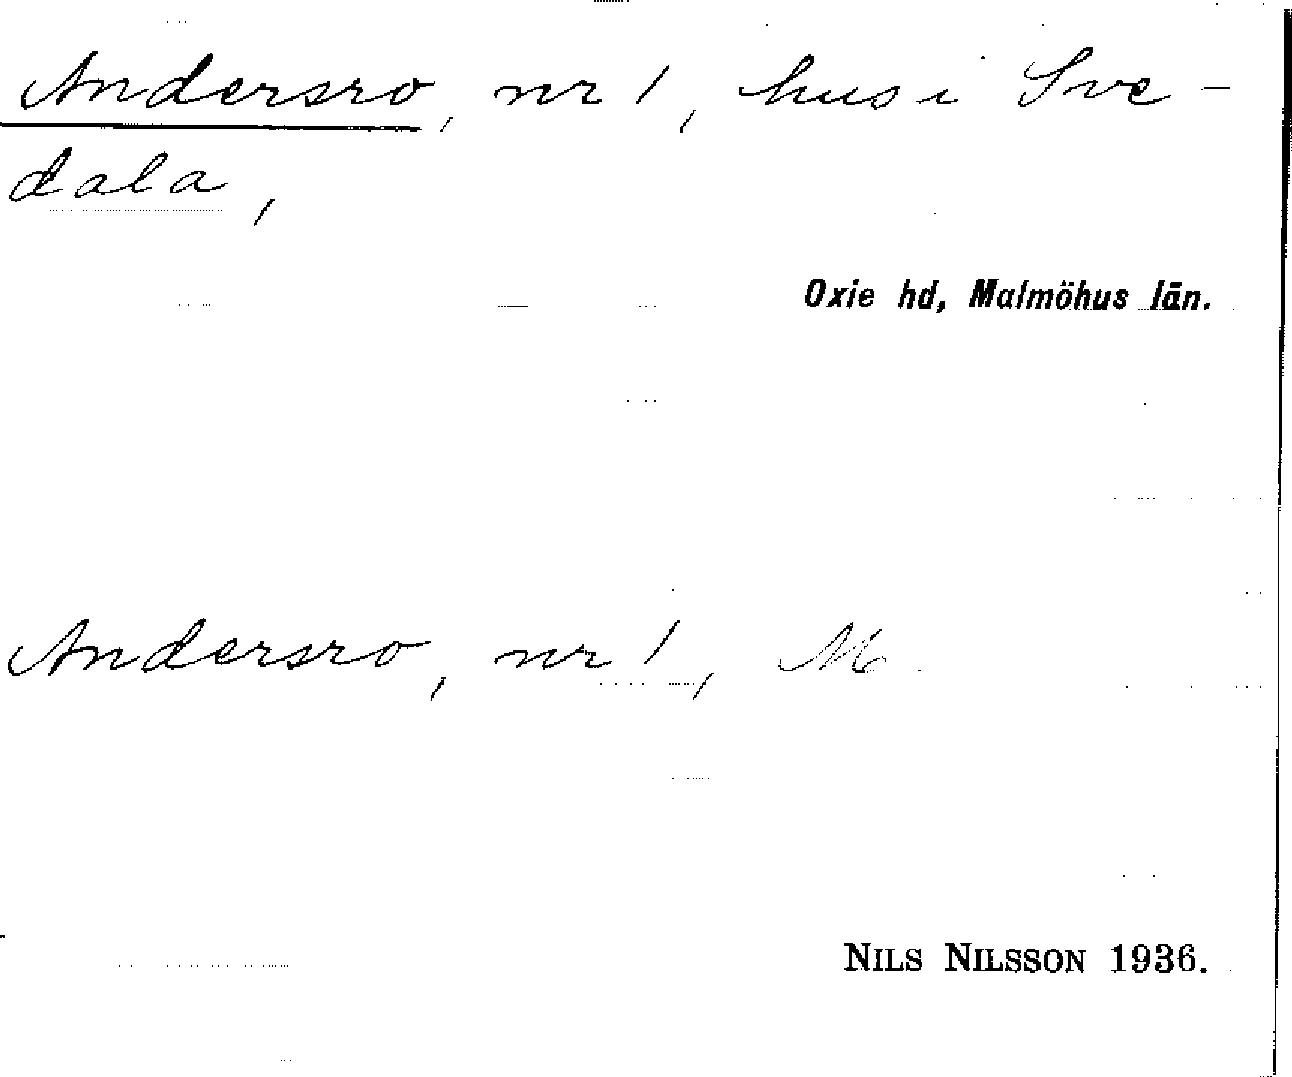 Andersro, nr 1, hus i Sve-
dala,
Oxie hd, Malmöhus län.
Andersro, nr 1, M.
NILS NILSSON 1936.